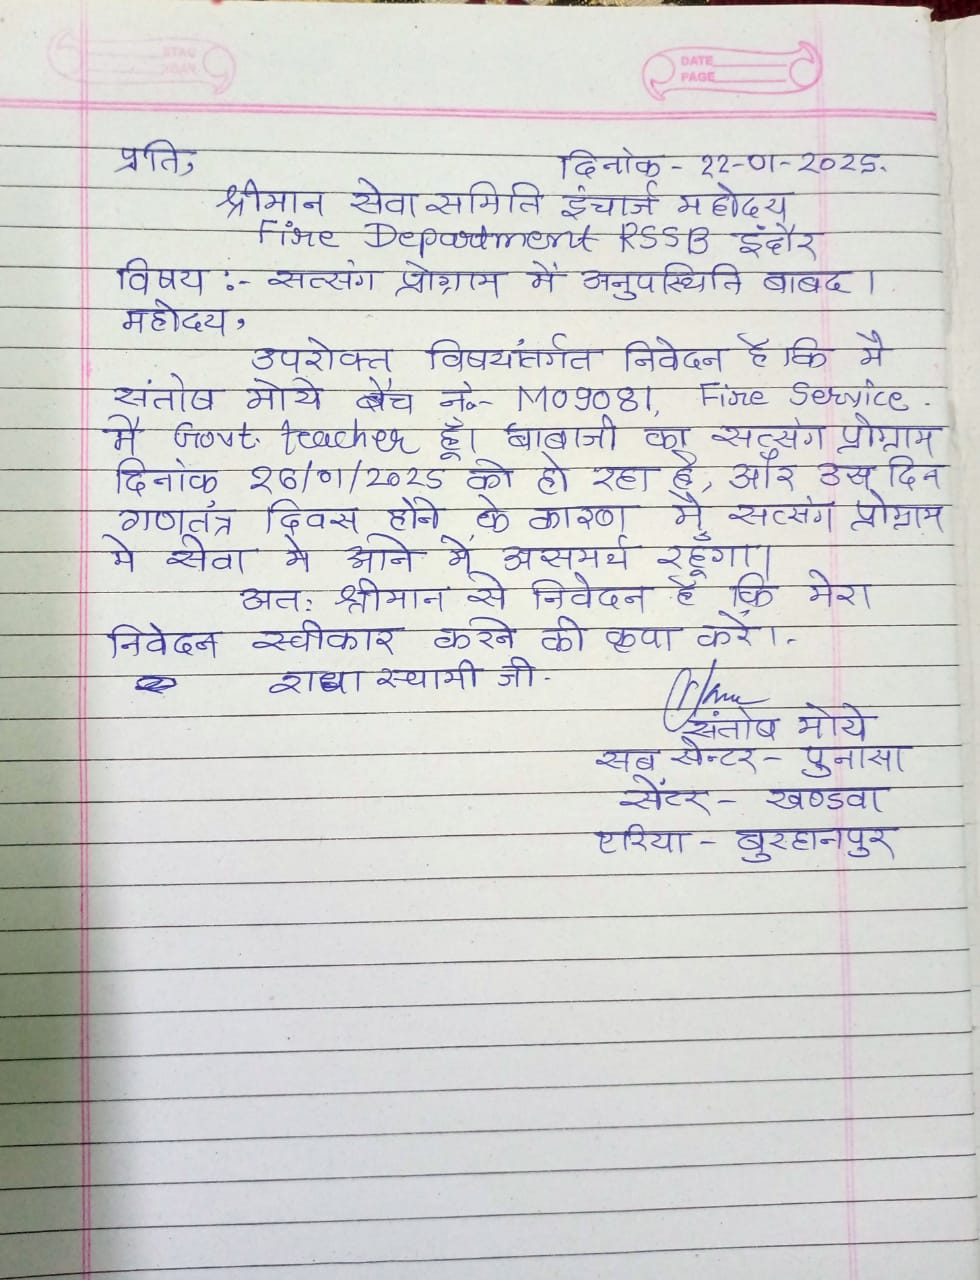 DATE
PAGE
प्रति, दिनांक - 22-01-2025.
श्रीमान सेवा समिति इंचार्ज महोदय
Fire Department RSSB इंदौर
विषय :- सत्संग प्रोग्राम में अनुपस्थिति बाबद ।
महोदय,
उपरोक्त विषयांतर्गत निवेदन है कि मै
संतोष मोये बैच नं.- M09081, Fire Service.
मै Govt. teacher हूँ। बाबाजी का सत्संग प्रोग्राम
दिनांक 26/01/2025 को हो रहा है, और उस दिन
गणतंत्र दिवस होने के कारण मैं सत्संग प्रोग्राम
मे सेवा मे आने में असमर्थ रहूंगा।
अतः श्रीमान से निवेदन है कि मेरा
निवेदन स्वीकार करने की कृपा करें।.
राधा स्वामी जी.
संतोष मोये
सब सेन्टर - पुनासा
सेंटर - खण्डवा
एरिया - बुरहानपुर